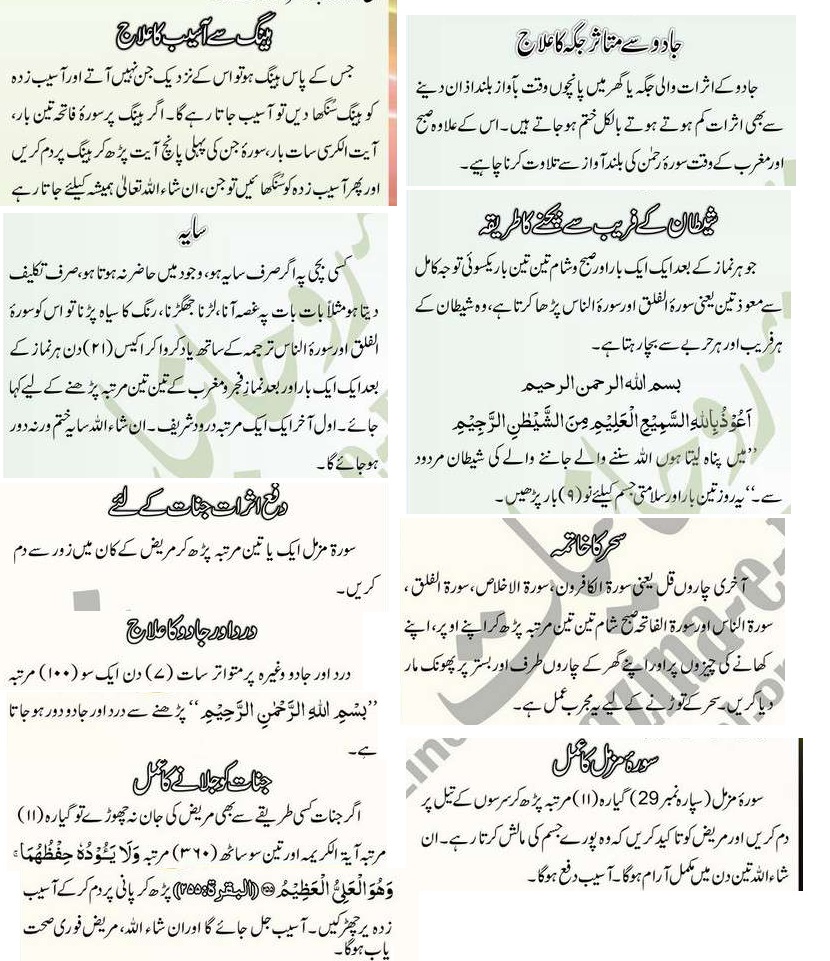 جادو سے متاثر جگہ کا علاج
جادو کے اثرات والی جگہ یا گھر میں پانچوں وقت بآواز بلند اذان دینے
سے بھی اثرات کم ہوتے ہوتے بالکل ختم ہو جاتے ہیں۔ اس کے علاوہ صبح
اور مغرب کے وقت سورۂ رحمٰن کی بلند آواز سے تلاوت کرنا چاہیے۔
شیطان کے فریب سے بچنے کا طریقہ
جو ہر نماز کے بعد ایک ایک بار اور صبح و شام تین تین بار یکسوئی توجہ کامل
سے معوذتین یعنی سورۃ الفلق اور سورۃ الناس پڑھا کرتا ہے، وہ شیطان کے
ہر فریب اور ہر حربے سے بچا رہتا ہے۔
بسم اللہ الرحمن الرحیم
اَعُوْذُ بِاللّٰهِ السَّمِيْعِ الْعَلِيْمِ مِنَ الشَّيْطٰنِ الرَّجِيْمِ
’’میں پناہ لیتا ہوں اللہ سننے والے جاننے والے کی شیطان مردود
سے۔‘‘ یہ روز تین بار اور سلامتی جسم کیلئے نو (۹) بار پڑھیں۔
سحر کا خاتمہ
آخری چاروں قل یعنی سورۃ الکافرون، سورۃ الاخلاص، سورۃ الفلق،
سورۃ الناس اور سورۃ الفاتحہ صبح شام تین تین مرتبہ پڑھ کر اپنے اوپر، اپنے
کھانے کی چیزوں پر اور اپنے گھر کے چاروں طرف اور بستر پر پھونک مار
دیا کریں۔ سحر کے توڑنے کے لیے یہ مجرب عمل ہے۔
سورۂ مزمل کا عمل
سورۂ مزمل (سپارہ نمبر 29) گیارہ (۱۱) مرتبہ پڑھ کر سرسوں کے تیل پر
دم کریں اور مریض کو تاکید کریں کہ وہ پورے جسم کی مالش کرتا رہے۔ ان
شاء اللہ تین دن میں مکمل آرام ہوگا۔ آسیب دفع ہوگا۔
ہینگ سے آسیب کا علاج
جس کے پاس ہینگ ہو تو اس کے نزدیک جن نہیں آتے اور آسیب زدہ
کو ہینگ سُنگھا دیں تو آسیب جاتا رہے گا۔ اگر ہینگ پر سورۂ فاتحہ تین بار،
آیت الکرسی سات بار، سورۂ جن کی پہلی پانچ آیت پڑھ کر ہینگ پر دم کریں
اور پھر آسیب زدہ کو سُنگھائیں تو جن، ان شاء اللہ تعالیٰ ہمیشہ کیلئے جاتا رہے
سایہ
کسی بچی پہ اگر صرف سایہ ہو، وجود میں حاضر نہ ہوتا ہو، صرف تکلیف
دیتا ہو مثلاً بات بات پہ غصہ آنا، لڑنا جھگڑنا، رنگ کا سیاہ پڑنا تو اس کو سورۃ
الفلق اور سورۃ الناس ترجمہ کے ساتھ یاد کروا کر اکیس (۲۱) دن ہر نماز کے
بعد ایک ایک بار اور بعد نماز فجر و مغرب کے تین تین مرتبہ پڑھنے کے لیے کہا
جائے۔ اول آخر ایک ایک مرتبہ درود شریف۔ ان شاء اللہ سایہ ختم ورنہ دور
ہو جائے گا۔
دفع اثرات جنات کے لئے
سورۃ مزمل ایک یا تین مرتبہ پڑھ کر مریض کے کان میں زور سے دم
کریں۔
درد اور جادو کا علاج
درد اور جادو وغیرہ پر متواتر سات (۷) دن ایک سو (۱۰۰) مرتبہ
’’بِسْمِ اللّٰهِ الرَّحْمٰنِ الرَّحِيْمِ‘‘ پڑھنے سے درد اور جادو دور ہو جاتا
ہے۔
جنات کو جلانے کا عمل
اگر جنات کسی طریقے سے بھی مریض کی جان نہ چھوڑے تو گیارہ (۱۱)
مرتبہ آیۃ الکریمہ اور تین سو ساٹھ (۳۶۰) مرتبہ وَلَا يَـُٔوْدُهٗ حِفْظُهُمَا ۚ
وَهُوَ الْعَلِيُّ الْعَظِيْمُ (البقرۃ:۲۵۵) پڑھ کر پانی پر دم کر کے آسیب
زدہ پر چھڑکیں۔ آسیب جل جائے گا اور ان شاء اللہ، مریض فوری صحت
یاب ہوگا۔